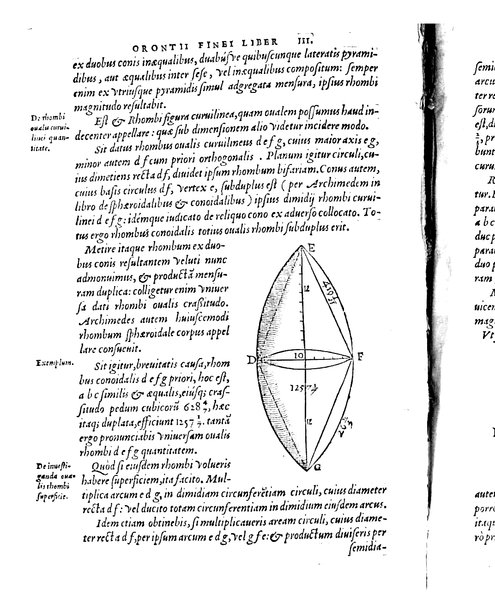 ORONTII FINEI LIBER III.
ex duobus conis inæqualibus, duabúsve quibuscunque lateratis pyrami-
dibus, aut æqualibus inter sese, vel inæqualibus compositum: semper
enim ex vtriusque pyramidis simul adgregata mensura, ipsius rhombi
magnitudo resultabit.
De rhombi
oualis curui
linei quan-
titate.
Est & Rhombi figura curuilinea, quam oualem possumus haud in-
decenter appellare: quæ sub dimensionem alio videtur incidere modo.
Sit datus rhombus oualis curuilineus d e f g, cuius maior axis e g,
minor autem d f cum priori orthogonalis. Planum igitur circuli, cu-
ius dimetiens recta d f, diuidet ipsum rhombum bifariam. Conus autem,
cuius basis circulus d f, vertex e, subduplus est (per Archimedem in
libro de sphæroidalibus & conoidalibus) ipsius dimidij rhombi curui-
linei d e f g: idémque iudicato de reliquo cono ex aduerso collocato. To-
tus ergo rhombus conoidalis totius oualis rhombi subduplus erit.
Metire itaque rhombum ex duo-
bus conis resultantem veluti nunc
admonuimus, & productã mensu-
ram duplica: colligetur enim vniuer
sa dati rhombi oualis crassitudo.
Archimedes autem huiuscemodi
rhombum sphæroidale corpus appel
lare consueuit.
Exemplum.
Sit igitur, breuitatis causa, rhom
bus conoidalis d e f g priori, hoc est,
a b c similis & æqualis, eiúsq; cras-
situdo pedum cubicorũ 628 4/7, hæc
itaq; duplata, efficiunt 1257 1/7. tantã
ergo pronunciabis vniuersam oualis
rhombi d e f g quantitatem.
De inuesti-
ganda oua-
lis rhombi
superficie.
Quòd si eiusdem rhombi volueris
habere superficiem, ita facito. Mul-
tiplica arcum e d g, in dimidiam circunferẽtiam circuli, cuius diameter
recta d f: vel ducito totam circunferentiam in dimidium eiusdem arcus.
Idem etiam obtinebis, si multiplicaueris aream circuli, cuius diame-
ter recta d f, per ipsum arcum e d g, vel g f e: & productum diuiseris per
semidia-
E
12
D
10
F
1257 1/7
12
G